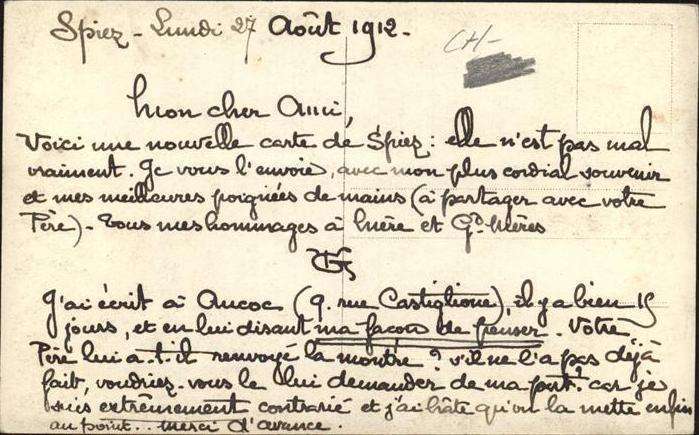 Spiez - Lundi 27 Août 1912.
CH-
Mon cher Ami,
Voici une nouvelle carte de Spiez : elle n'est pas mal
vraiment. Je vous l'envoie, avec mon plus cordial souvenir
et mes meilleures poignées de mains (à partager avec votre
Père) - Tous mes hommages à Mère et Gd. Mères
J'ai écrit à Aucoc (9. rue Castiglione), il y a bien 15
jours, et en lui disant ma façon de penser. Votre
Père lui a-t-il renvoyé la montre ? s'il ne l'a pas déjà
fait, voudriez-vous le lui demander de ma part? car je
suis extrêmement contrarié et j'ai hâte qu'on la mette enfin
au point.. Merci d'avance.